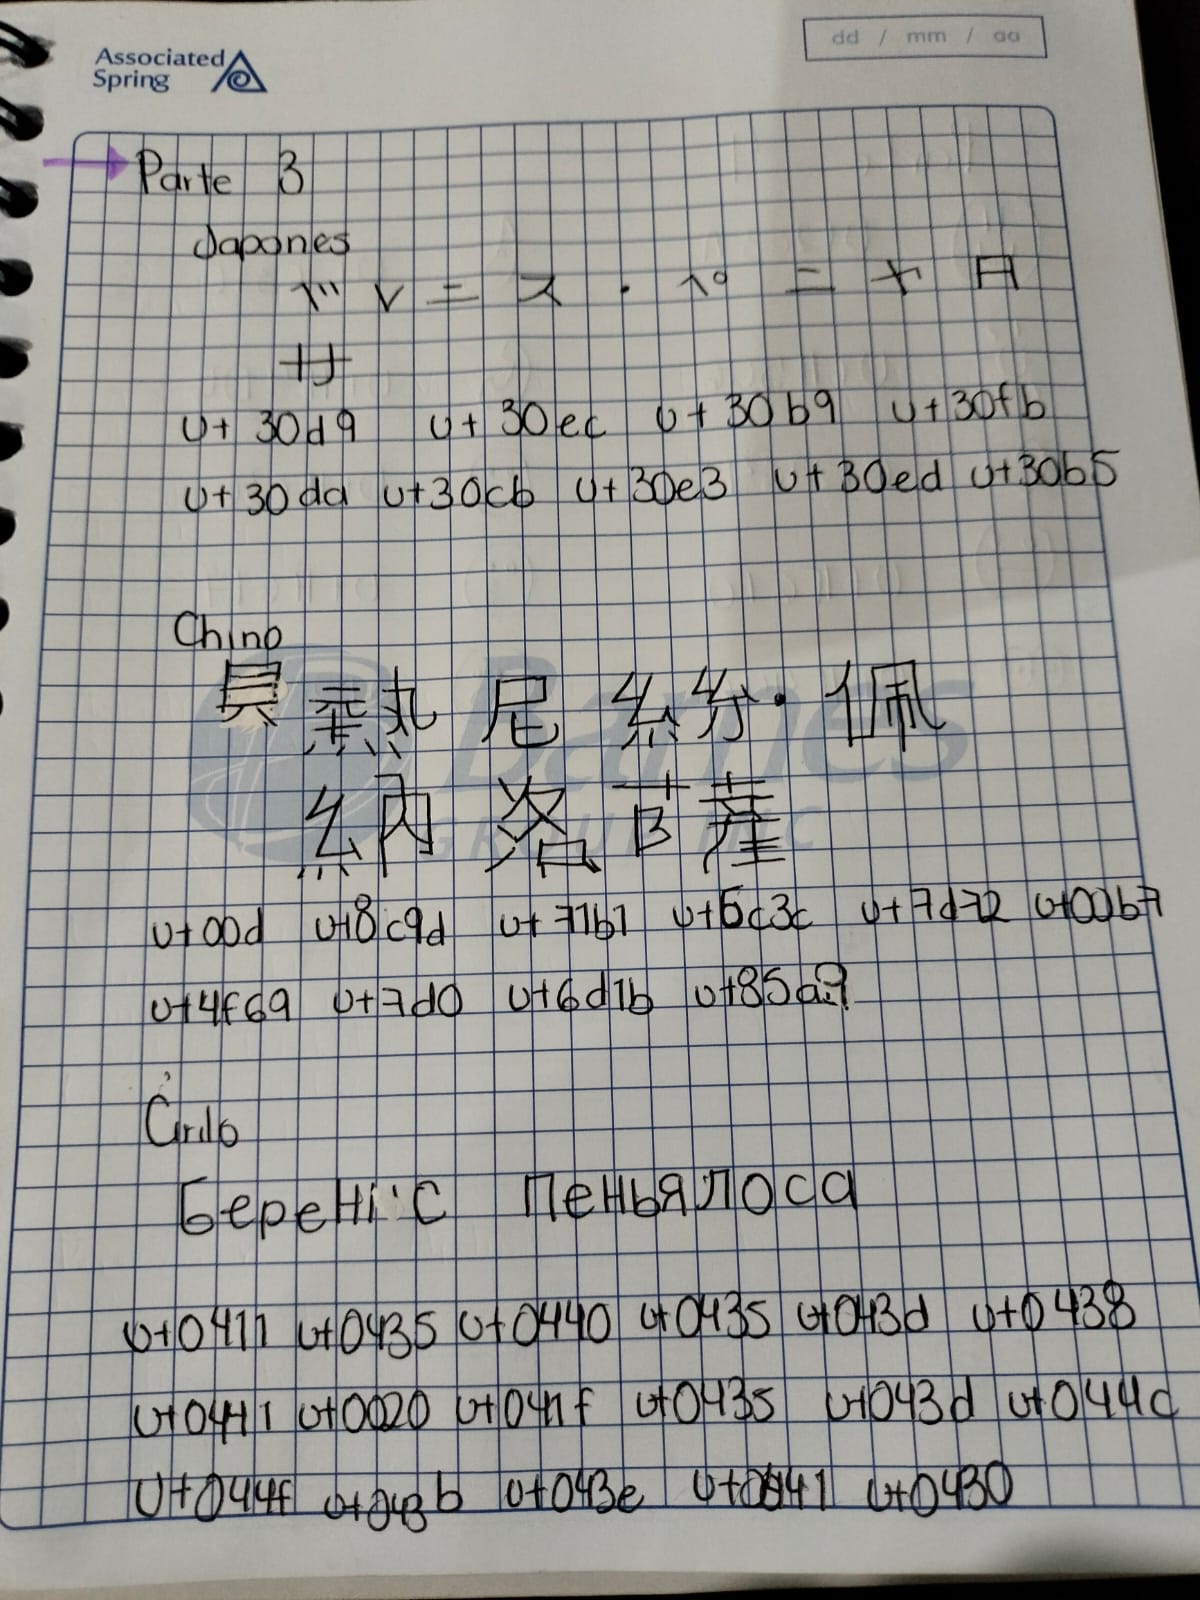 Associated
Spring
dd / mm / aa
Parte 3
Japones
ベ レ ニ ス · ペ ニ ャ ロ
サ
U+ 30d9 U+ 30ec U+ 30b9 U+30fb
U+30da U+30cb U+30e3 U+30ed U+30b5
Chino
貝 熱 尼 絲 · 佩
納 洛 薩
U+00d U+8c9d U+71b1 U+5c3c U+7d72 U+00b7
U+4f69 U+7d0 U+6d1b U+85a?
Cirilo
Берені'с Пеньялоса
U+0411 U+0435 U+0440 U+0435 U+043d U+0438
U+0441 U+0020 U+041f U+0435 U+043d U+044c
U+044f U+043b U+043e U+0441 U+0430
Barnes
GROUP INC